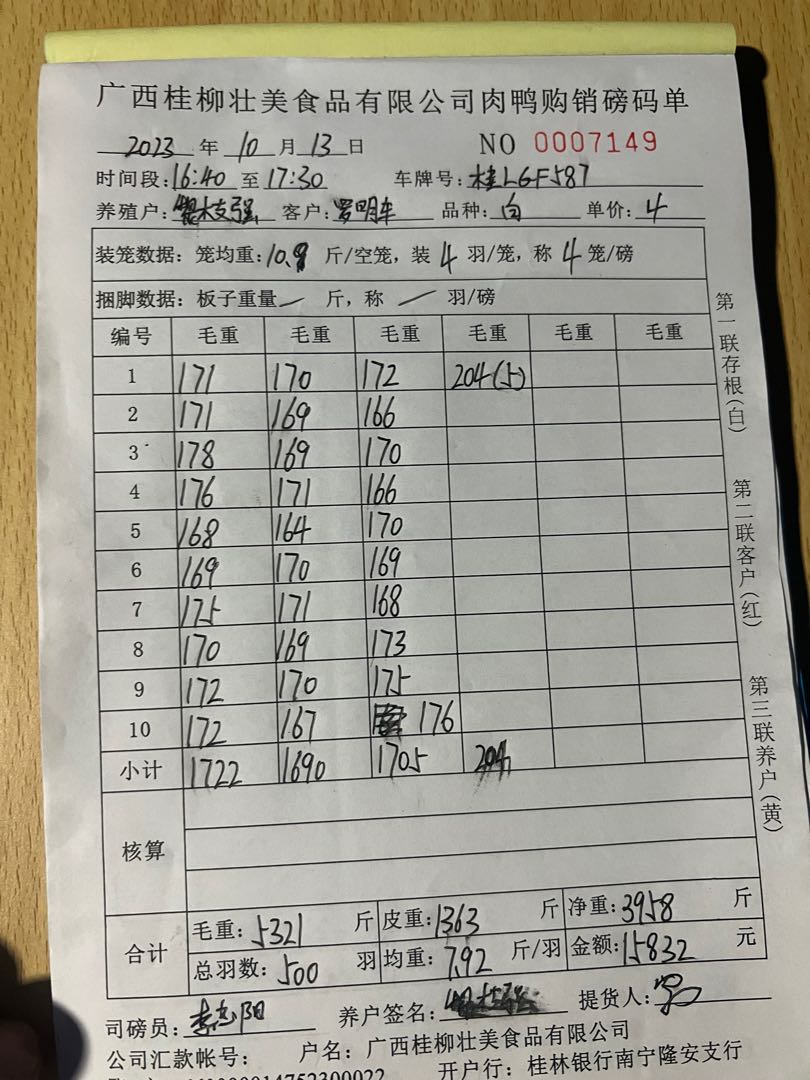 广西桂柳壮美食品有限公司肉鸭购销磅码单
2023 年 10 月 13 日 NO 0007149
时间段: 16:40 至 17:30 车牌号: 桂LGF587
养殖户: 客户: 罗明车 品种: 白 单价: 4
装笼数据: 笼均重: 10.9 斤/空笼, 装 4 羽/笼, 称 4 笼/磅
捆脚数据: 板子重量 — 斤, 称 — 羽/磅
编号 毛重 毛重 毛重 毛重 毛重 毛重
1 171 170 172 204(5)
2 171 169 166
3 178 169 170
4 176 171 166
5 168 164 170
6 169 170 169
7 175 171 168
8 170 169 173
9 172 170 175
10 172 167 176
小计 1722 1690 1705 204
核算
合计 毛重: 5321 斤 皮重: 1363 斤 净重: 3958 斤
总羽数: 500 羽 均重: 7.92 斤/羽 金额: 15832 元
司磅员: 养户签名: 提货人:
公司汇款帐号: 户名: 广西桂柳壮美食品有限公司
开户行: 桂林银行南宁隆安支行
第一联存根(白)
第二联客户(红)
第三联养户(黄)